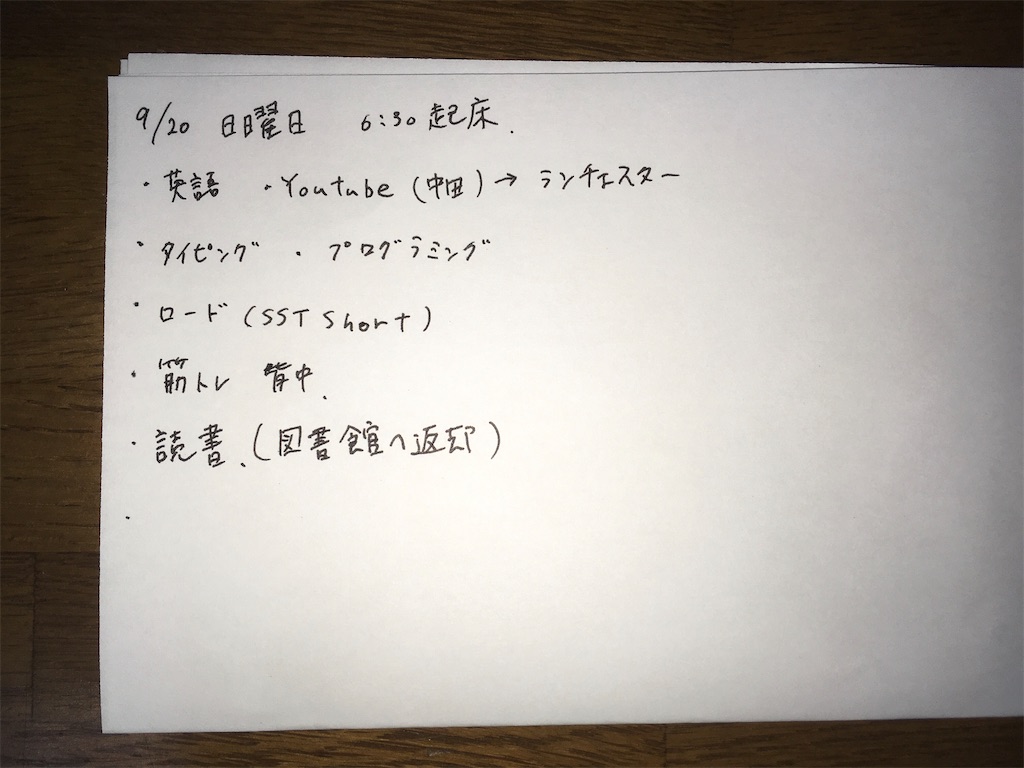 9/20 日曜日 6:30 起床.
・英語 ・Youtube (中田) → ランチェスター
・タイピング ・プログラミング
・ロード (SST Short)
・筋トレ 背中.
・読書. (図書館へ返却)
・